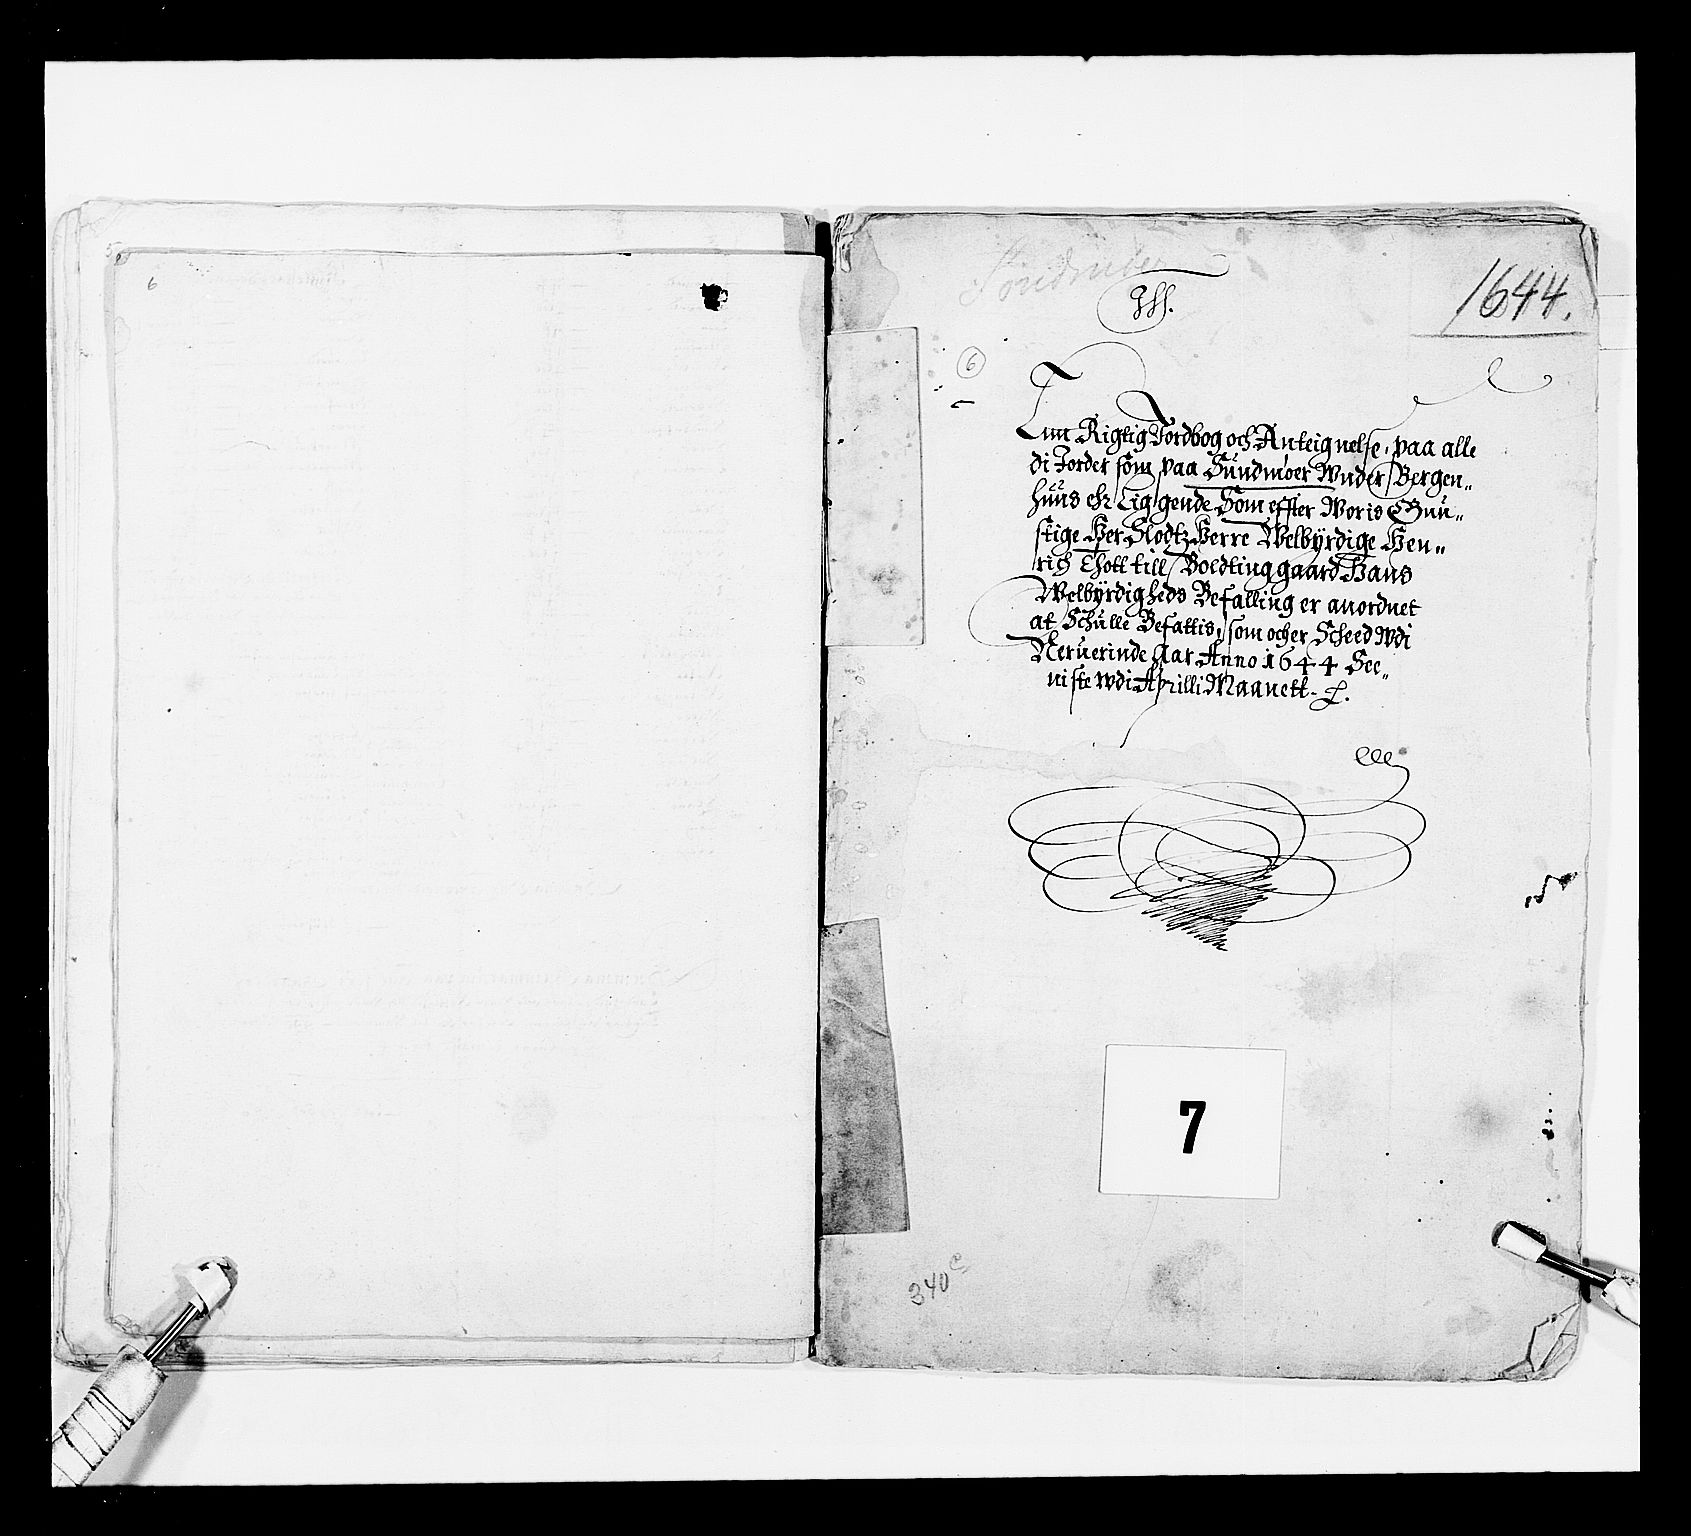 6
1644.
6
Enn Rigtig Jordbog och Anteignelse, paa alle
di Jorder som paa Sündmöer Wnder Bergen„
hüüs Liggende Som effter Woris Gün„
stige Her Slodtz Herre Welbÿrdige Hen„
rich Thott till Boldtinggaard Hans
Welbÿrdigheds Befalling er anordnet
at Schülle Befattis, som och er Scheed Wdi
Nerüerinde Aar Anno 1644 See„
niste wdi Aprilli Maanett.
7
340 c